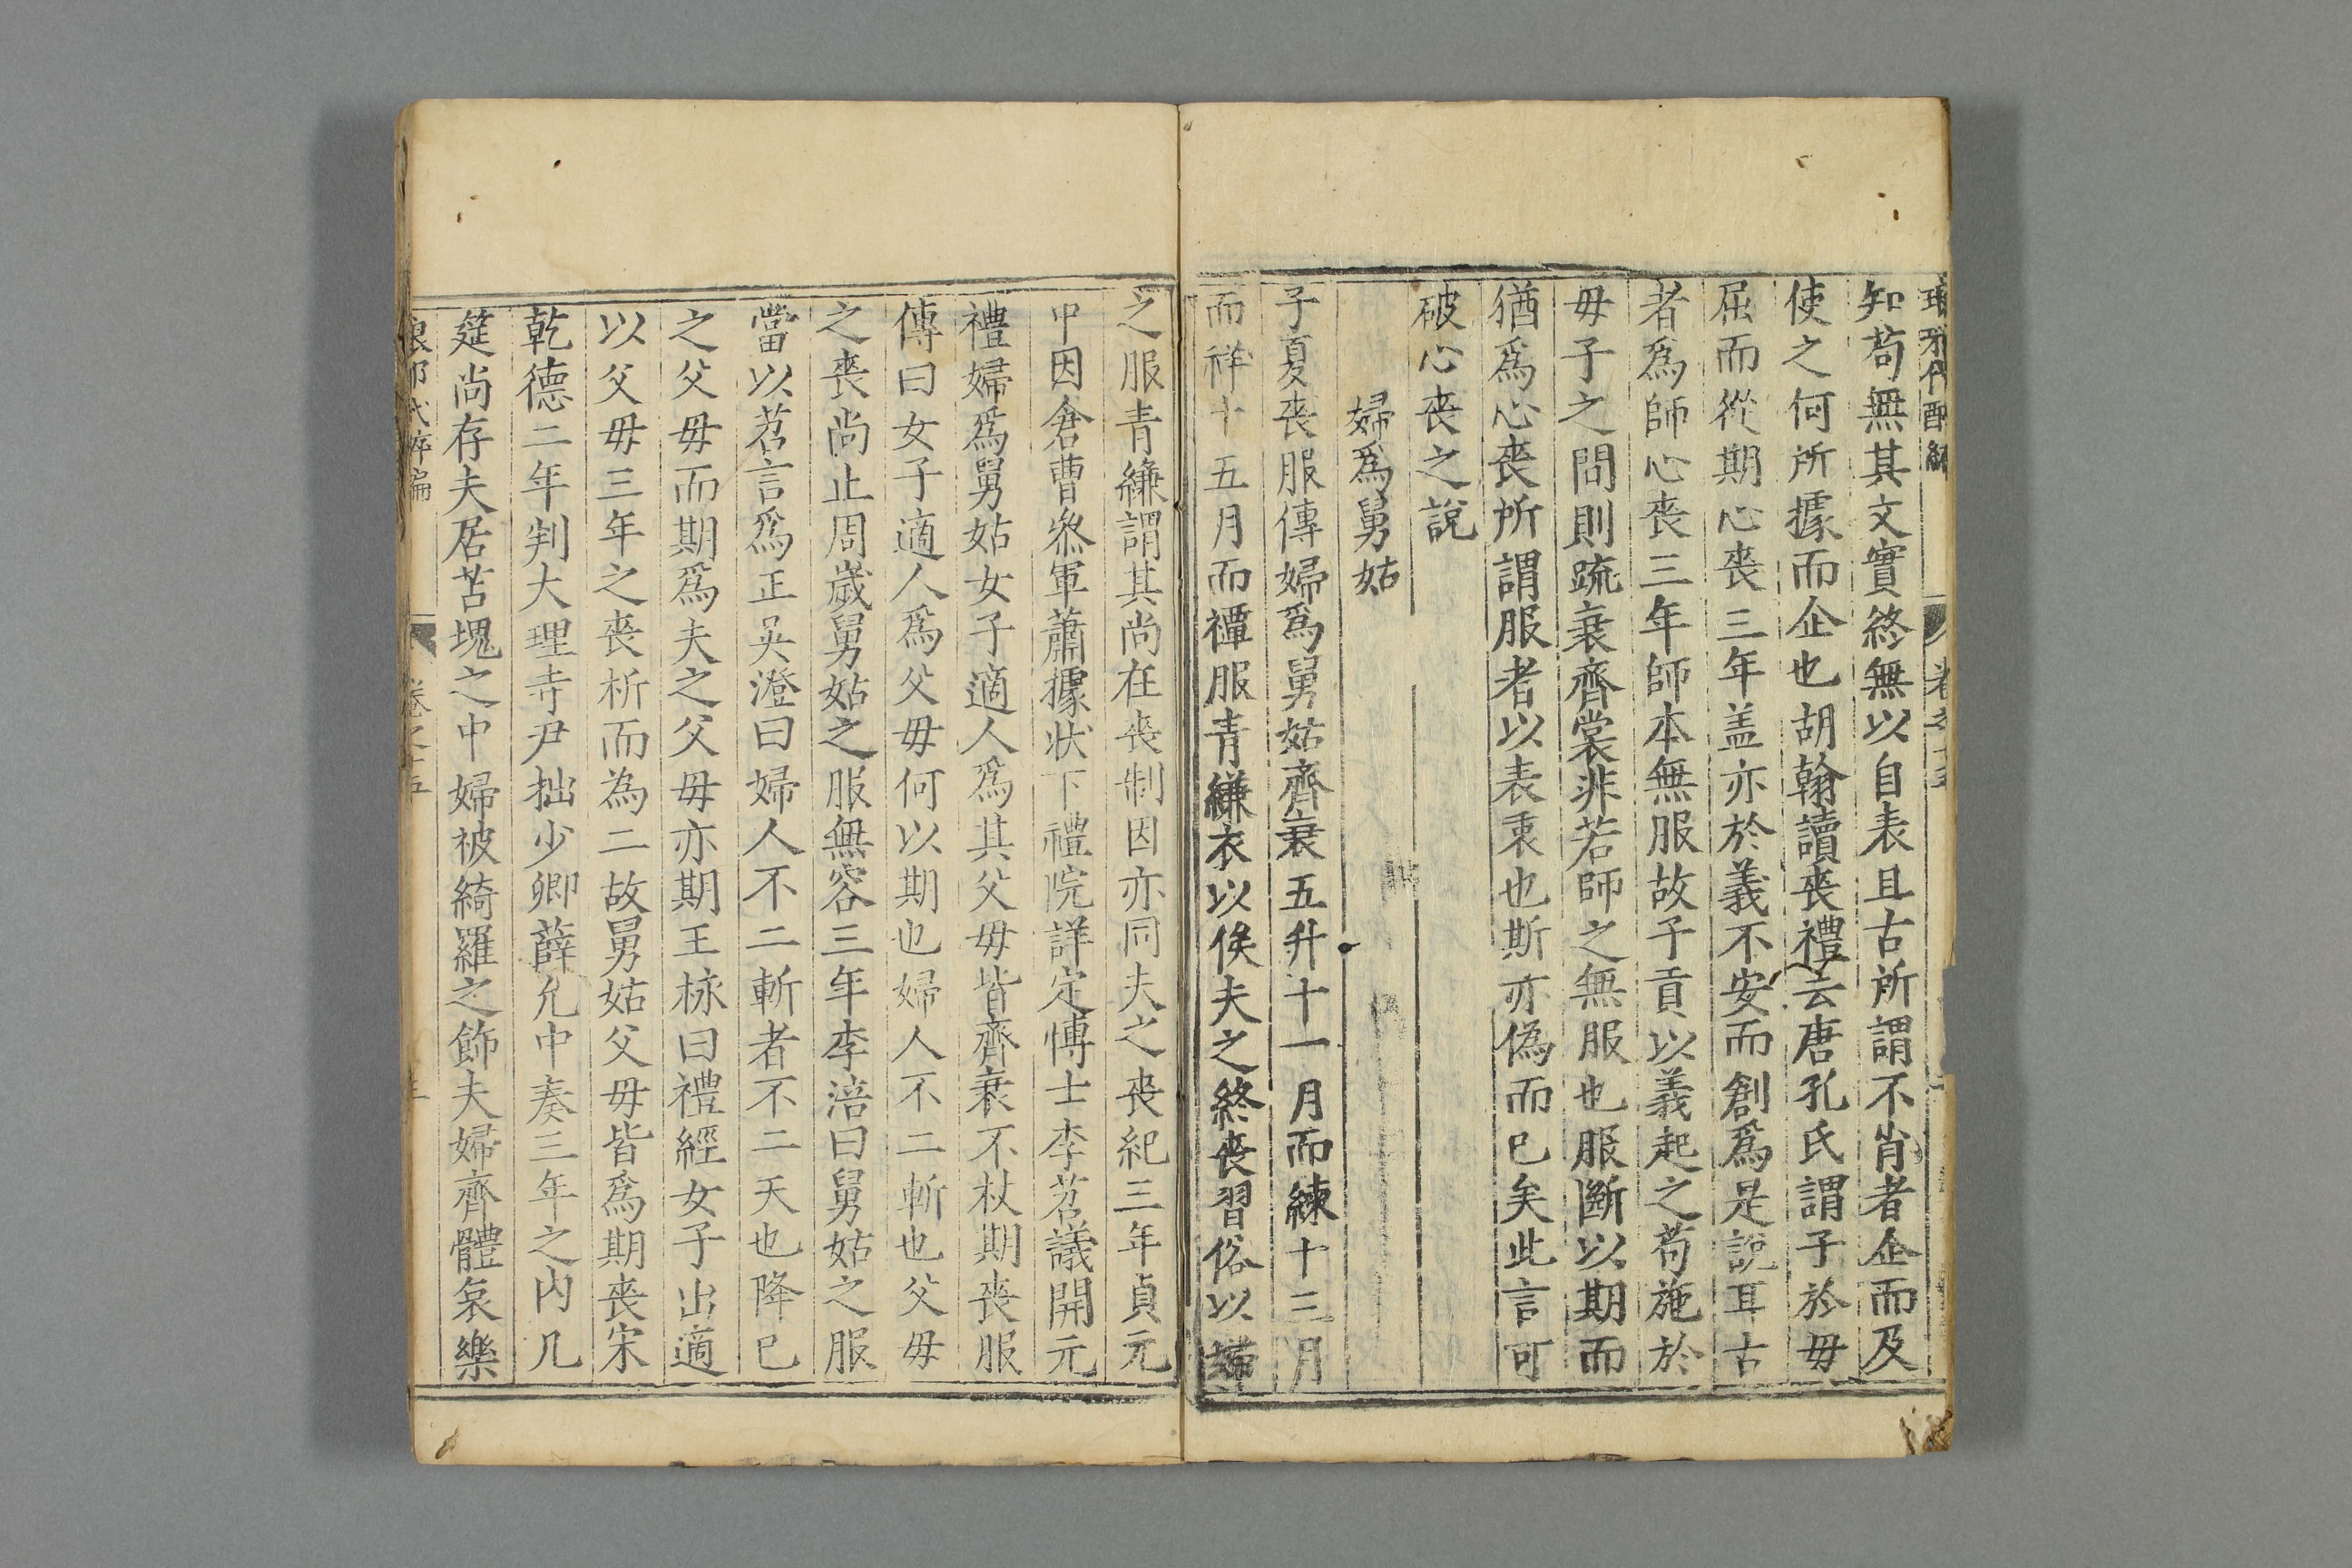 知苟無其文實終無以自表且古所謂不肖者企而及
使之何所據而企也胡翰讀喪禮云唐孔氏謂子於毋
屈而從期心喪三年盖亦於義不安而創爲是說耳古
者爲師心喪三年師本無服故子貢以義起之苟施於
毋子之間則䟽衰齊裳非若師之無服也服斷以期而
猶爲心喪所謂服者以表衷也斯亦僞而已矣此言可
破心喪之說
婦爲舅姑
子夏喪服傳婦爲舅姑齊衰五升十一月而練十三月
而祥十五月而禫服青縑衣以俟夫之終喪習俗以婦
之服青縑謂其尚在喪制因亦同夫之喪紀三年貞元
中因倉曹叅軍蕭據狀下禮院詳定博士李苕議開元
禮婦爲舅姑女子適人爲其父毋皆齊衰不杖期喪服
傳曰女子適人爲父毋何以期也婦人不二斬也父毋
之喪尚止周歲舅姑之服無容三年李涪曰舅姑之服
當以苕言爲正吳澄曰婦人不二斬者不二天也降已
之父毋而期爲夫之父毋亦期王栐曰禮經女子出適
以父毋三年之喪析而為二故舅姑父毋皆爲期喪宋
乾德二年判大理寺尹拙少卿薛允中奏三年之內几
筵尚存夫居苫塊之中婦被綺羅之飾夫婦齊體哀樂
琅邪代醉編 卷之十五